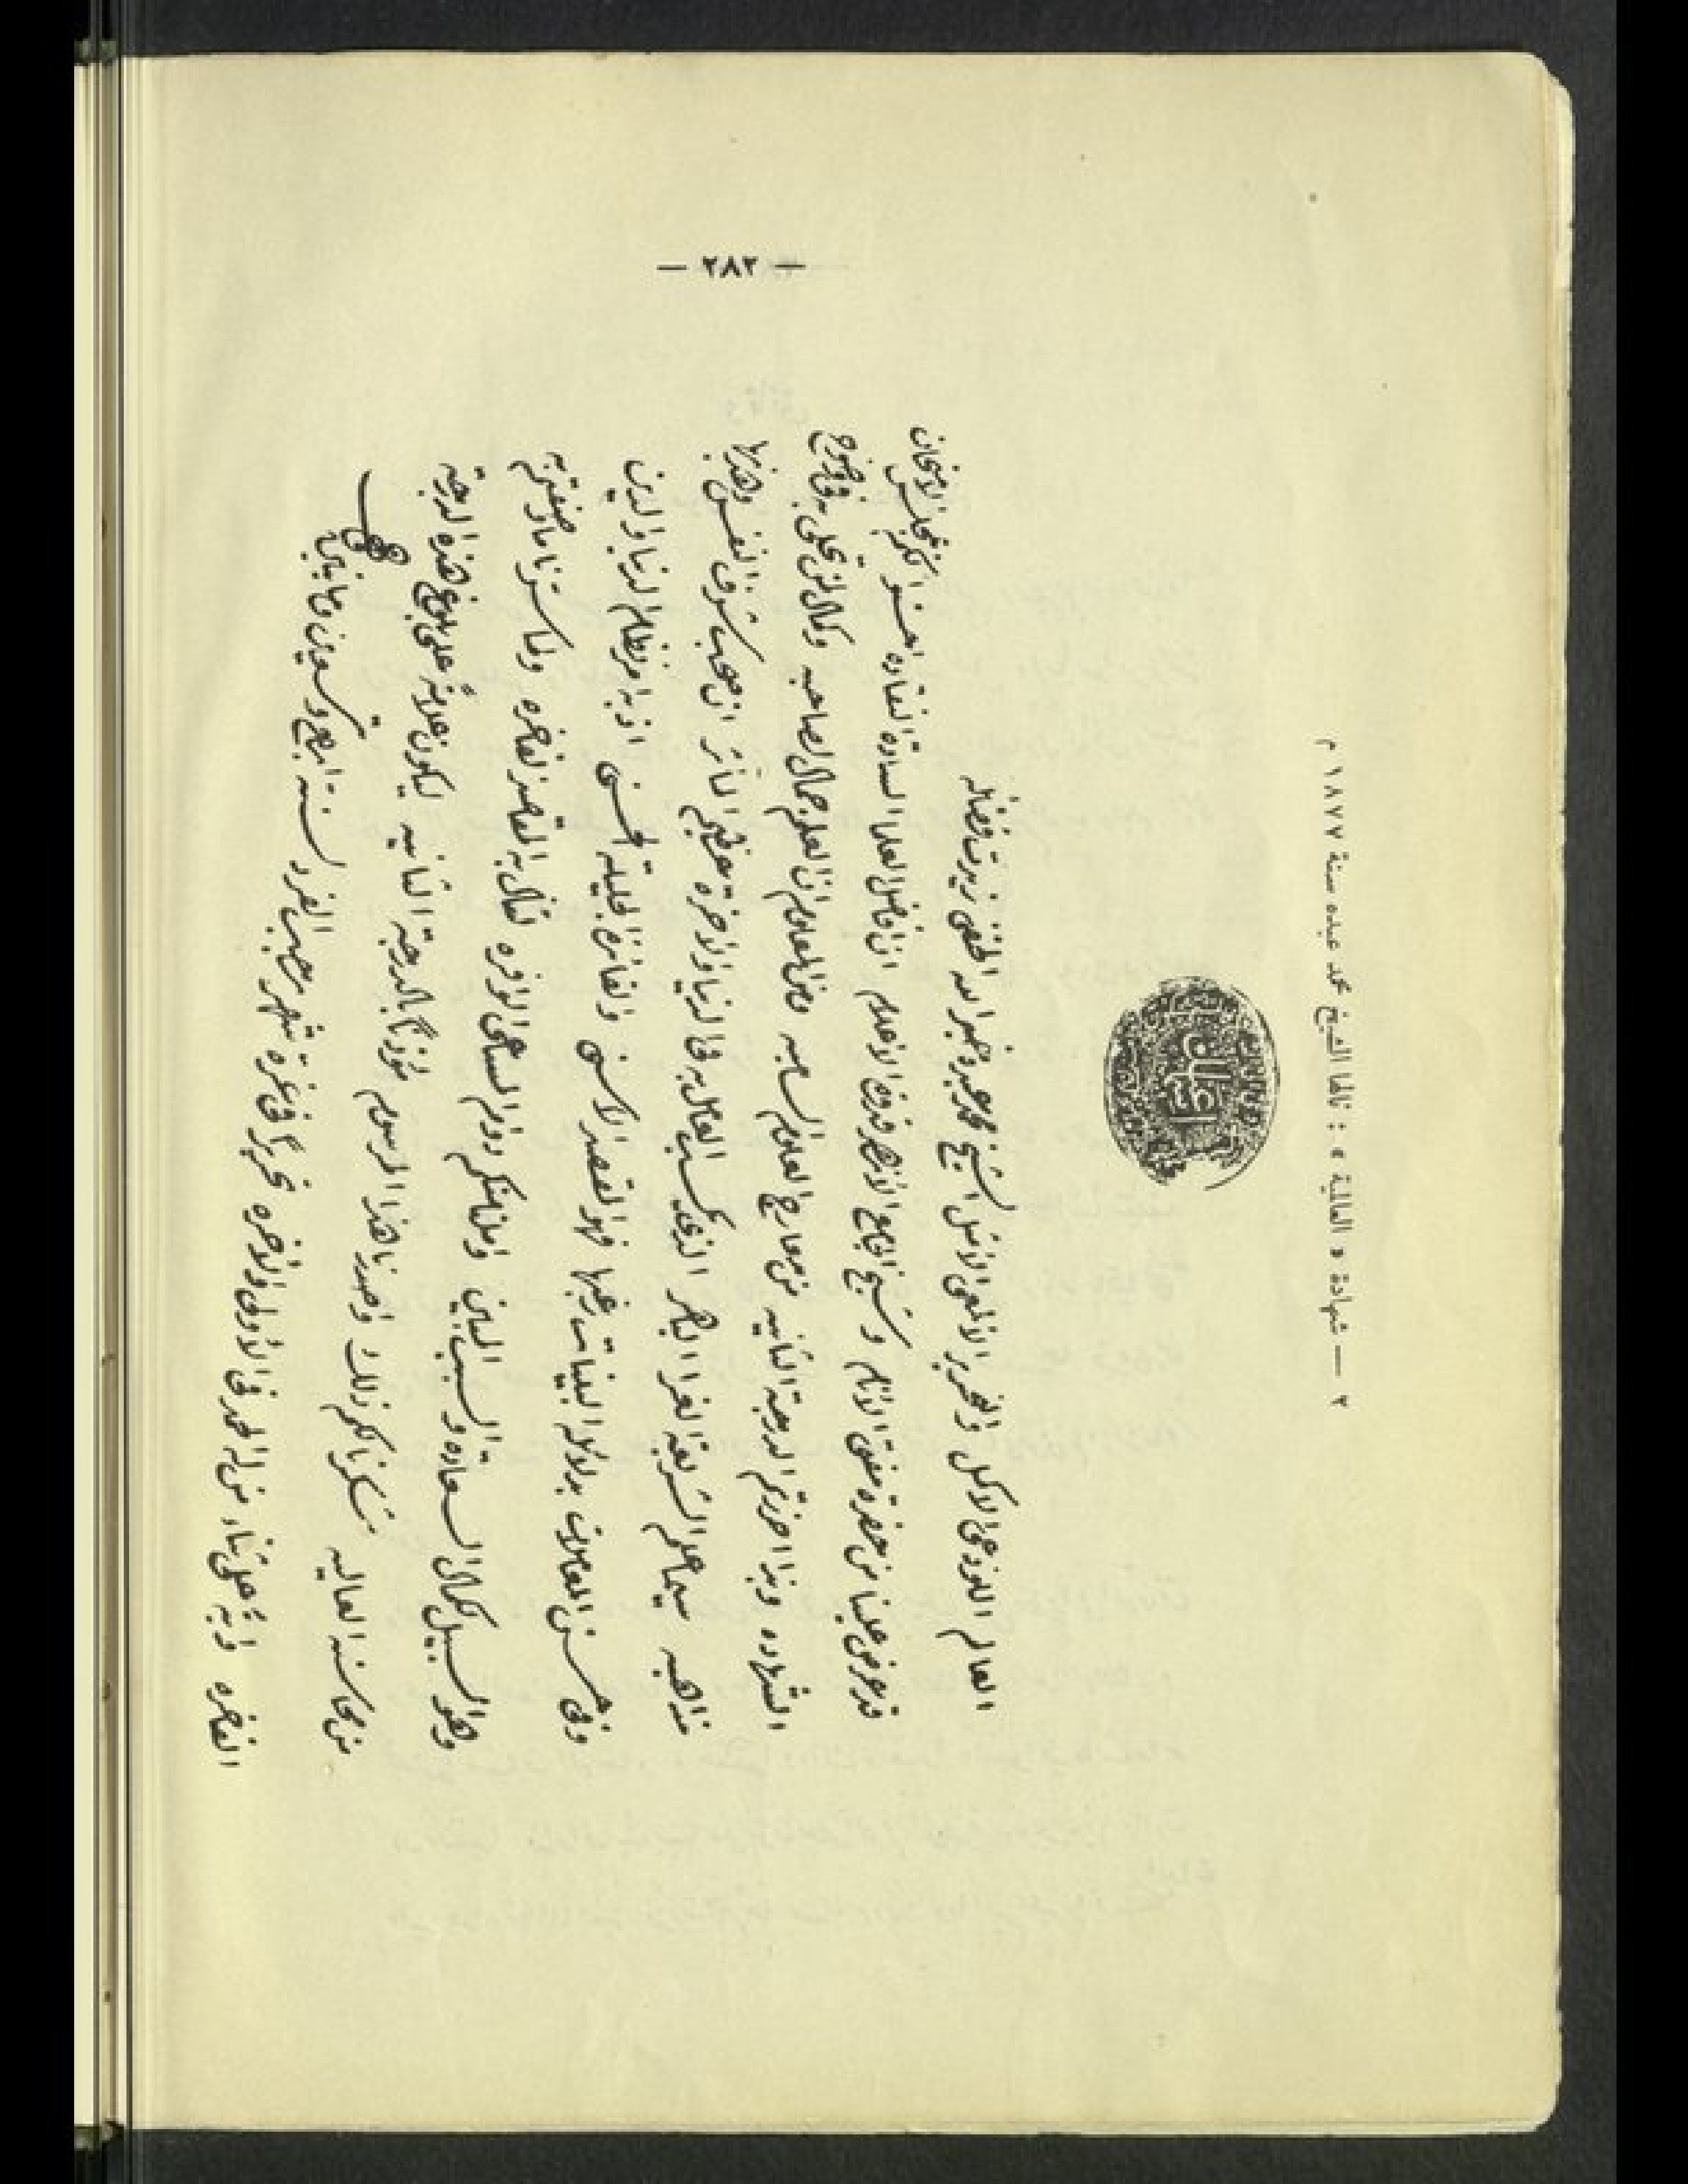 — ٢٨٢ —
٢ — شهادة « العالمية » : نالها الشيخ محمد عبده سنة ١٨٧٧ م
العالم اللوذعى الاكمل والنحرير الالمعى الامثل الشيخ محمد عبده خير الله الحنفى زيدت فضائله
قد عرض علينا من حضرة مفتى الانام وشيخ الجامع الازهر قدوة الاعلام ان افاضل العلما السادة النقاده امتحنوكم بمجلس الامتحان
الشهاده وبدا احرزتم الدرجة الثانيه من معارج العلوم الساميه ومن المعلوم ان العلم جمال لصاحبه وكمال لمن تحلى به
مذاهبه سيما علم الشريعة الغرا الباهر الذى يكسب العامل به فى الدنيا والاخرة عظيم المآثر شرف النفس
وفى حسن المعاملات بدلائله البينات رغبها فهو المقصد الاسنى والغاية الجليلة الحسنى اذ به امر نظام الدنيا والدين
وهو السبيل لكمال السعاده والسبب المتين واملنا منكم دوام المساعى الوافره لتنال به المقاصد الفاخره ولما سرنا ما
من محاسنه العاليه شكرناكم لذلك واصدرنا هذا المرسوم مؤذنًا بالدرجة الثانيه ليكون علامة على بلوغ هذه الدرجة
الفاخره وآية على ثناء من له الحمد فى الاولى والآخره تحريرًا فى غرة شهر رجب الفرد لسنة اربع وتسعين ومايتين